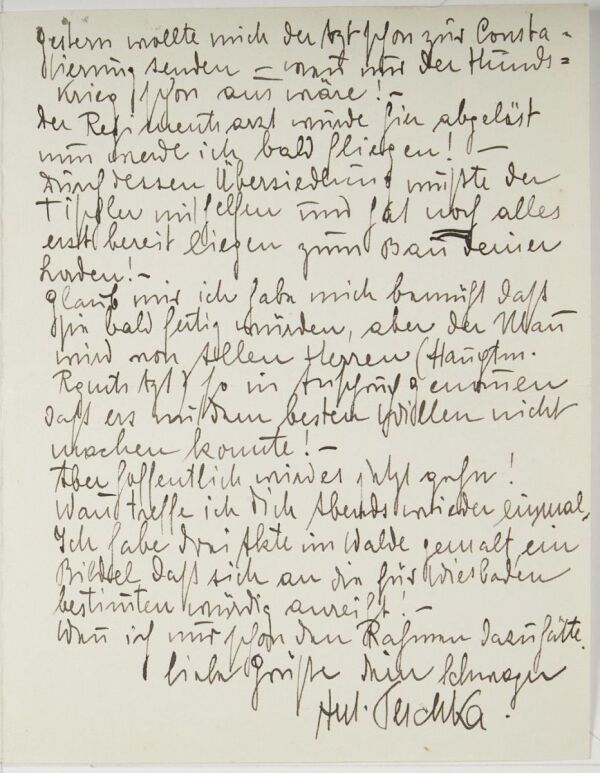 gestern wollte mich der Arzt schon zur Consta=
tierung senden – wenn nur der Hunds=
Krieg schon aus wäre! –
Der Regimentsarzt wurde hier abgelöst
nun werde ich bald fliegen! –
Durch dessen Übersiedlung mußte der
Tischler mithelfen und hat noch alles
erst bereit liegen zum Bau deiner
Laden! –
Glaub mir ich habe mich bemüht daß
sie bald fertig würden, aber der Mann
wird von allen Herren (Hauptm.
Rgmts Azt) so in Anspruch genommen
daß ers mit dem besten Willen nicht
machen konnte! –
Aber hoffentlich wird es jetzt gehn!
Wann treffe ich dich Abends wieder einmal,
Ich habe drei Akte im Walde gemalt ein
Bildel, daß sich an die für Wiesbaden
bestimten würdig anreiht! –
Wen ich nur schon den Rahmen dazu hätte.
liebe Grüße dein Schwager
Ant. Peschka.